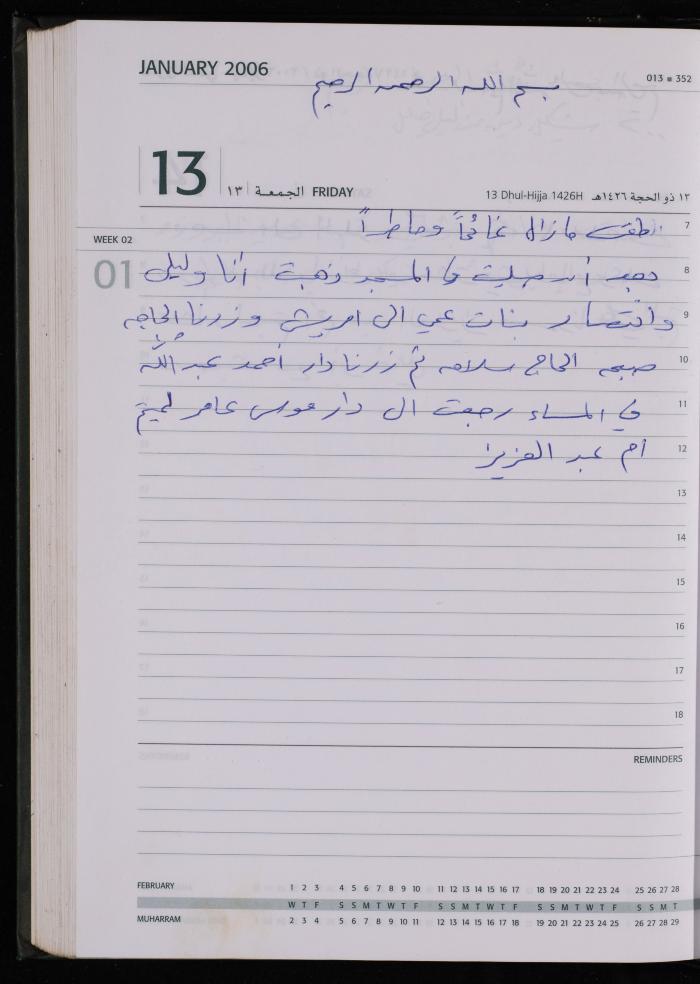 JANUARY 2006
013 ■ 352
بسم الله الرحمن الرحيم
13
١٣ الجمعة FRIDAY
13 Dhul-Hijja 1426H ١٣ ذو الحجة ١٤٢٦هـ
WEEK 02
01
7 الطقس مازال غائماً وماطراً
8 وبعد أن صليت في المسجد ذهبت أنا وليلى
9 وانتصار بنات عمي الى امريش وزرنا الحاجه
10 صبحه الحاج سلامه ثم زرنا دار أحمد عبد الله
11 في المساء رجعت الى دار موسى عامر
12 أم عبد العزيز
13
14
15
16
17
18
REMINDERS
FEBRUARY 1 2 3 4 5 6 7 8 9 10 11 12 13 14 15 16 17 18 19 20 21 22 23 24 25 26 27 28
W T F S S M T W T F S S M T W T F S S M T W T F S S M T
MUHARRAM 2 3 4 5 6 7 8 9 10 11 12 13 14 15 16 17 18 19 20 21 22 23 24 25 26 27 28 29